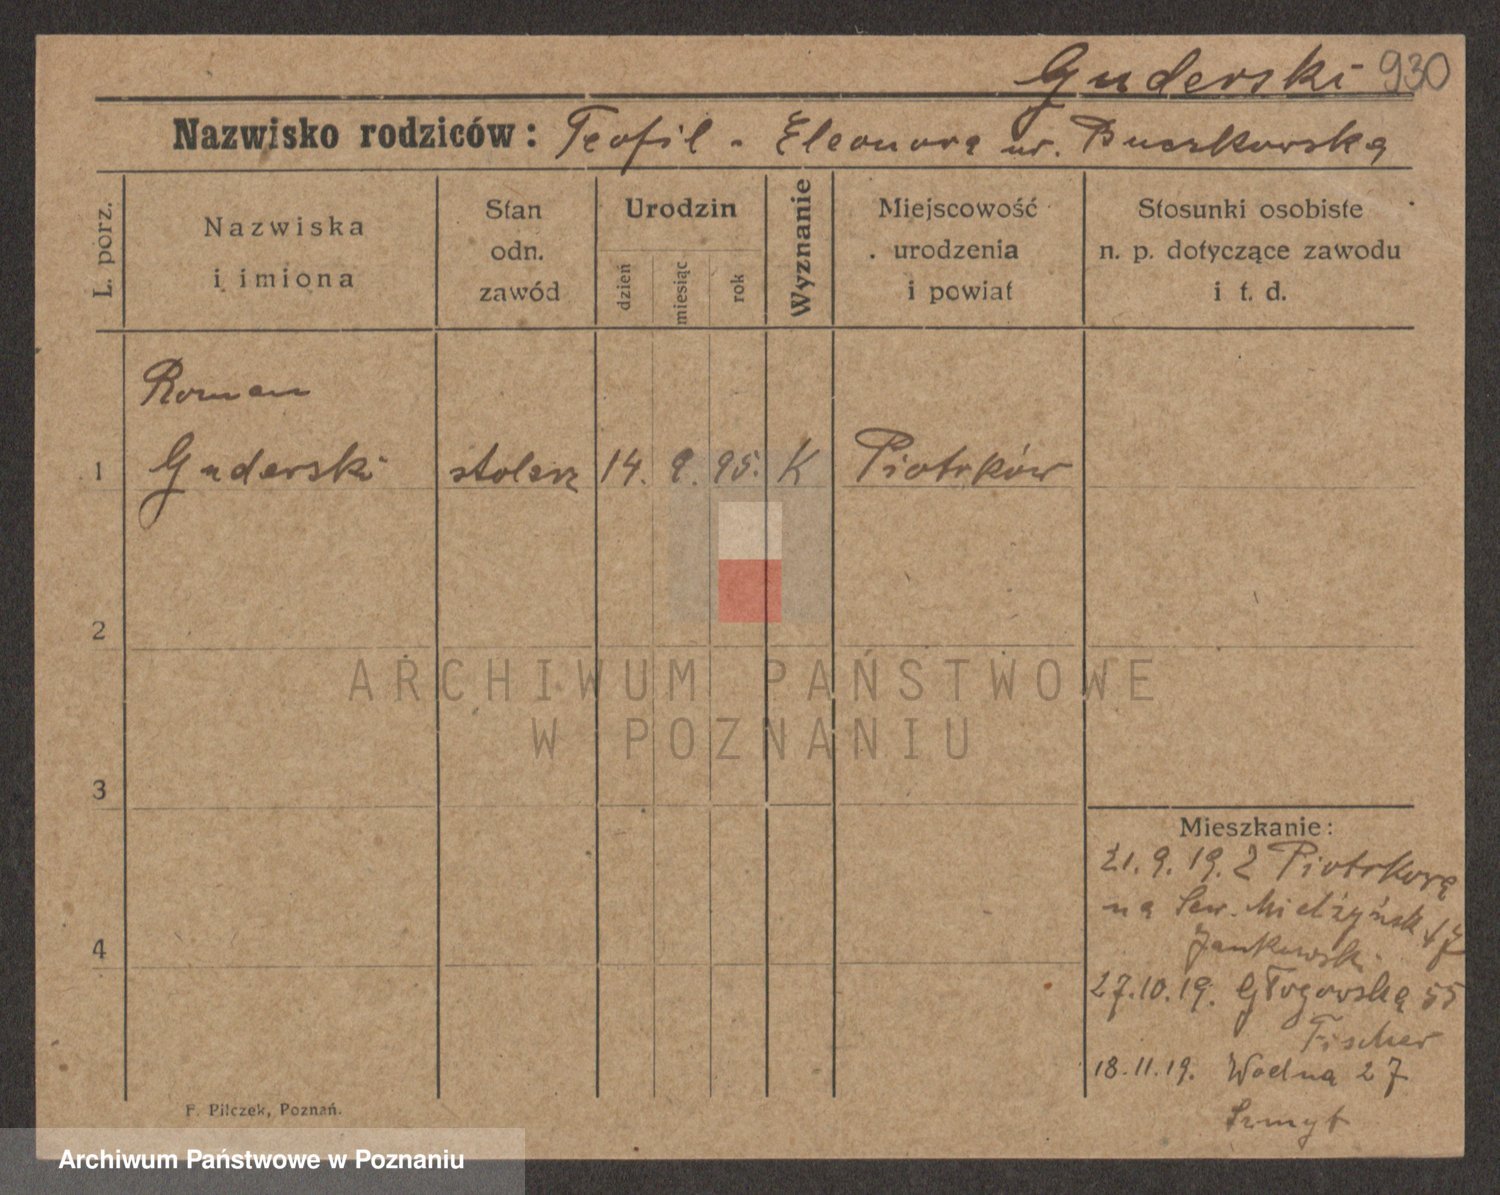 Guderski 930
Nazwisko rodziców: Teofil - Eleonora ur. Buczkowska
L. porz.
Nazwiska
i imiona
Stan
odn.
zawód
Urodzin
dzień
miesiąc
rok
Wyznanie
Miejscowość
urodzenia
i powiat
Stosunki osobiste
n. p. dotyczące zawodu
i t. d.
Roman
1 Guderski stolarz 14. 9. 95. K Piotrków
2
ARCHIWUM PAŃSTWOWE
W POZNANIU
3
Mieszkanie:
21.9.19. Z Piotrkowa
na Sew. Mielżyńsk
Jankowski
4
27.10.19. Głogowska 55
Fischer
18.11.19. Wodna 27
Szmyt
F. Pilczek, Poznań.
Archiwum Państwowe w Poznaniu